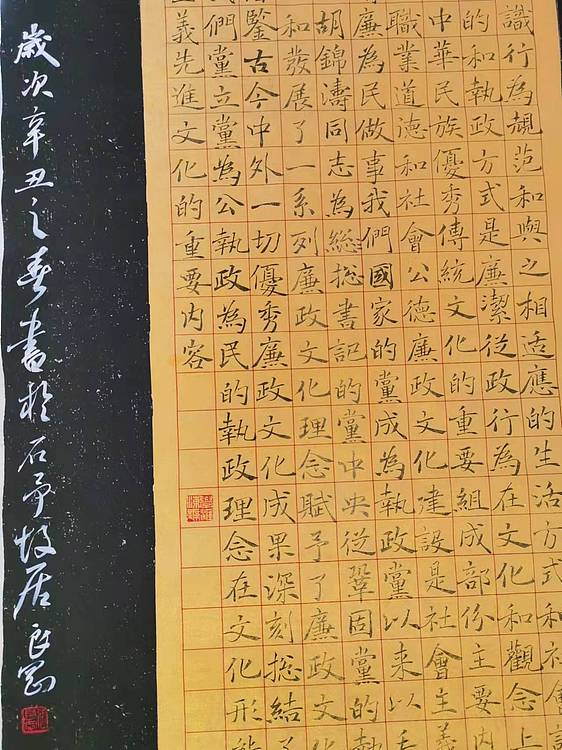 識行為規范和與之相适應的生活方式和社會
的和執政方式是廉潔從政行為在文化和觀念上
中華民族優秀傳統文化的重要組成部份主要内
職業道德和社會公德廉政文化建設是社會主義
廉為民做事我們國家的黨成為執政黨以來以毛
胡錦濤同志為総捴書記的黨中央從鞏固黨的
和發展了一系列廉政文化理念賦予了廉政文化
鑒古今中外一切優秀廉政文化成果深刻捴結了
們黨立黨為公執政為民的執政理念在文化形態
義先進文化的重要内容
歲次辛丑之春書於石予故居良